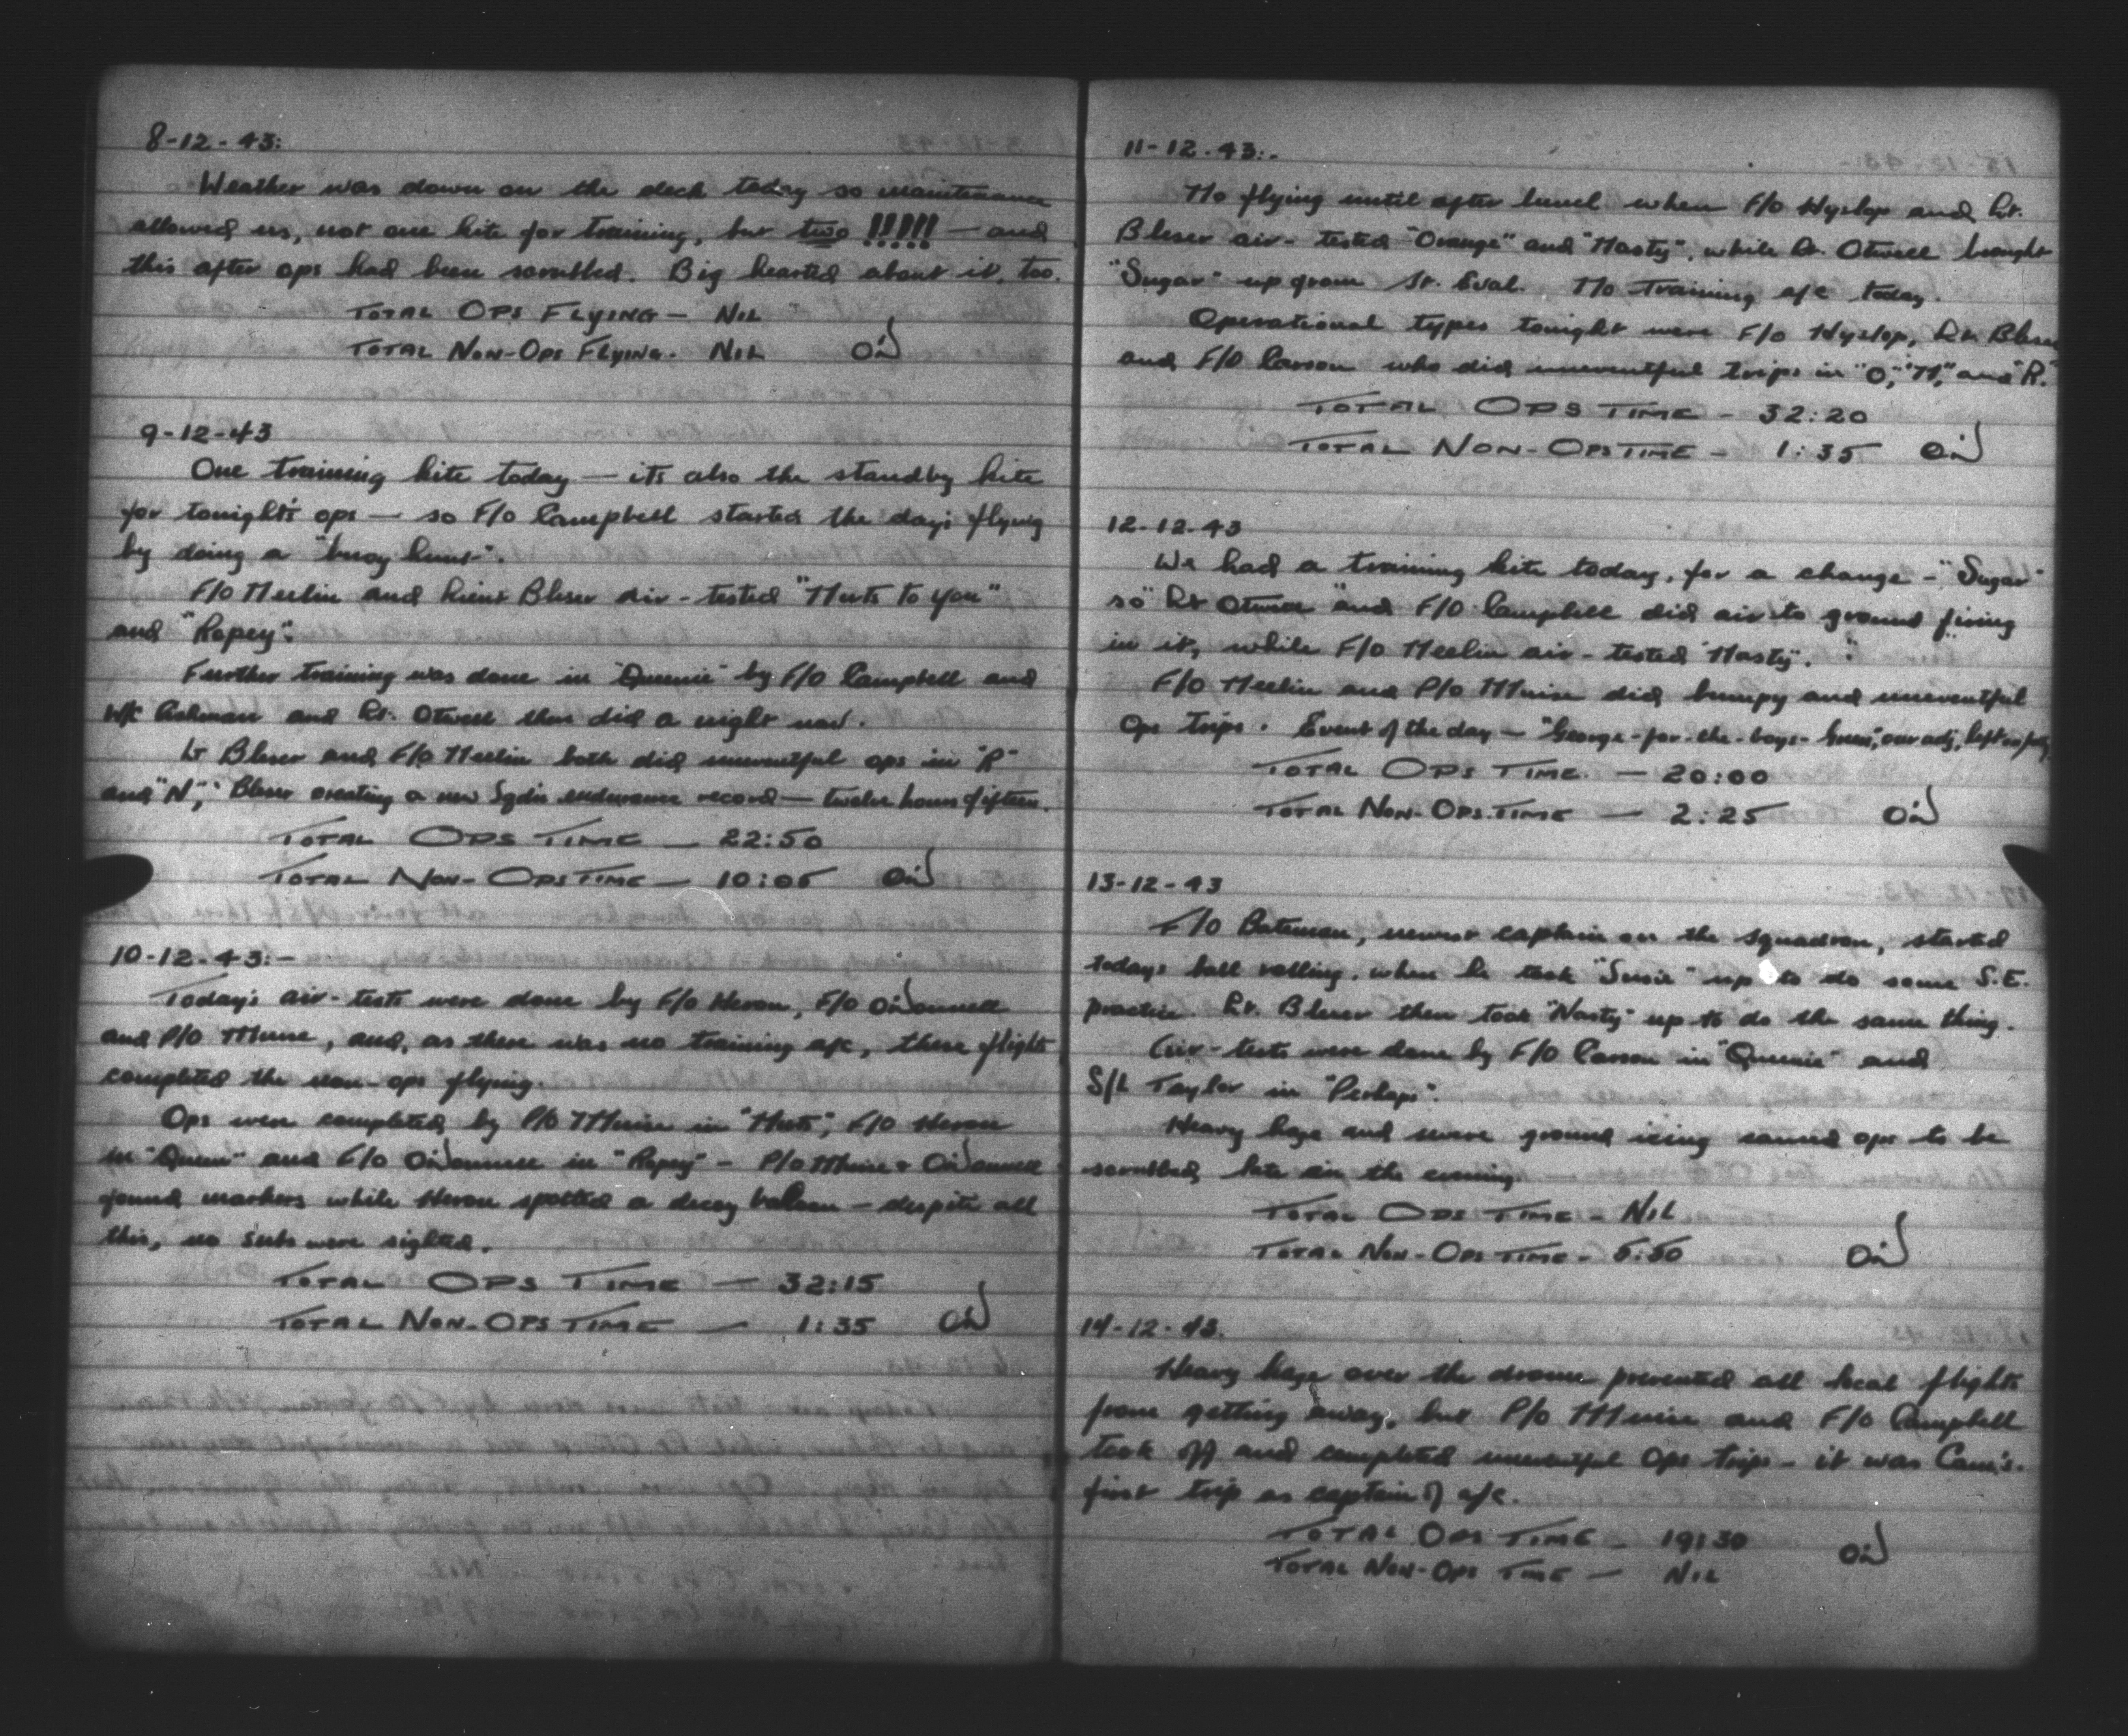 8-12-43:
Weather was down on the deck today so maintenance
allowed us, not one kite for training, but two !!!!! — and
this after ops had been scrubbed. Big hearted about it, too.
TOTAL OPS FLYING — NIL
TOTAL NON-OPS FLYING. NIL OD
9-12-43
One training kite today — its also the standby kite
for tonight's ops — so F/O Campbell started the day's flying
by doing a "buoy hunt".
F/O Meelin and Lieut Bleser air-tested "Nuts to you"
and "Ropey".
Further training was done in "Queenie" by F/O Campbell and
Ashman and Lt. Otwell then did a night nav.
Lt Bleser and F/O Meelin both did uneventful ops in "R"
and "N", Bleser creating a new Sqdn endurance record — twelve hours fifteen.
TOTAL OPS TIME — 22:50
TOTAL NON-OPS TIME — 10:05 OD
10-12-43:—
Today's air-tests were done by F/O Heron, F/O O'Donnell
and P/O Muise, and, as there was no training a/c, these flights
completed the non-ops flying.
Ops were completed by P/O Muise in "Nuts", F/O Heron
in "Queen" and F/O O'Donnell in "Ropey" — P/O Muise & O'Donnell
found markers while Heron spotted a decoy balloon — despite all
this, no subs were sighted.
TOTAL OPS TIME — 32:15
TOTAL NON-OPS TIME — 1:35 OD
11-12-43:-
No flying until after lunch when F/O Hyslop and Lt.
Bleser air-tested "Orange" and "Nasty", while Lt. Otwell brought
"Sugar" up from St. Eval. No Training a/c today.
Operational types tonight were F/O Hyslop, Lt. Bleser
and F/O Carson who did uneventful trips in "O", "N", and "R".
TOTAL OPS TIME — 32:20
TOTAL NON-OPS TIME — 1:35 OD
12-12-43
We had a training kite today, for a change — "Sugar"
so Lt Otwell and F/O Campbell did air to ground firing
in it, while F/O Meelin air-tested "Nasty".
F/O Meelin and P/O Muise did bumpy and uneventful
Ops trips. Event of the day — "George-for-the-boys-Green", our adj, left
TOTAL OPS TIME. — 20:00
TOTAL NON-OPS TIME — 2:25 OD
13-12-43
F/O Bateman, newest captain on the squadron, started
todays ball rolling, when he took "Susie" up to do some S.E.
practice. Lt. Bleser then took "Nasty" up to do the same thing.
Air-tests were done by F/O Carson in "Queenie" and
S/L Taylor in "Perhaps".
Heavy haze and severe ground icing caused ops to be
scrubbed late in the evening.
TOTAL OPS TIME — NIL
TOTAL NON-OPS TIME — 5:50 OD
14-12-43.
Heavy haze over the drome prevented all local flights
from getting away, but P/O Muise and F/O Campbell
took off and completed uneventful Ops trips — it was Cam's
first trip as captain of a/c.
TOTAL OPS TIME — 19:30 OD
TOTAL NON-OPS TIME — NIL